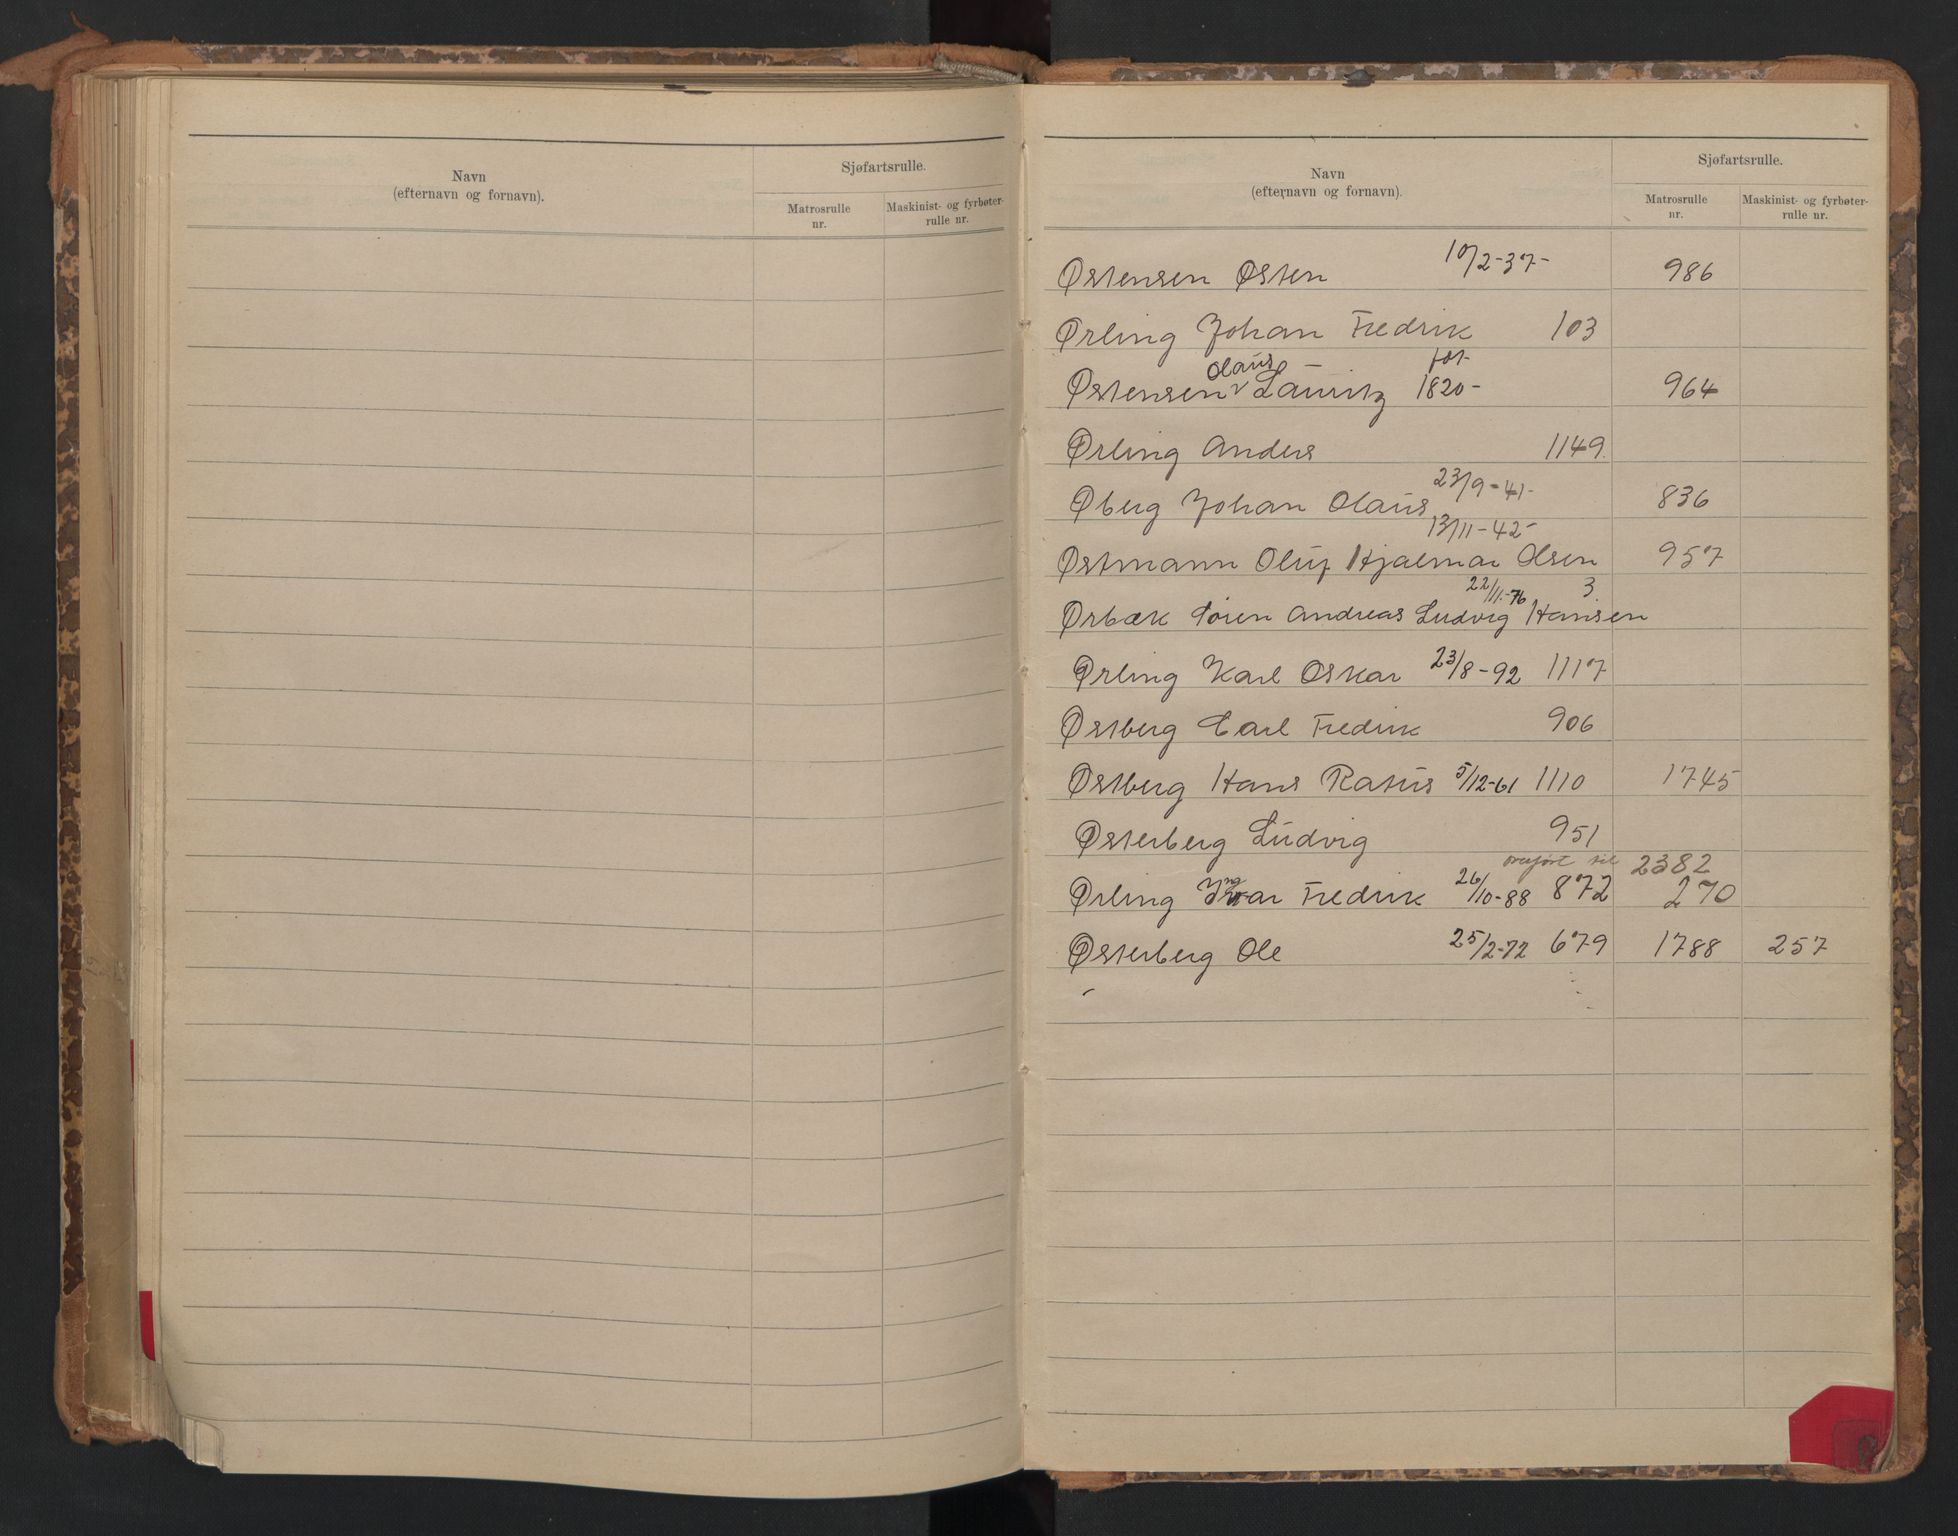 Navn
(efternavn og fornavn).
Sjøfartsrulle.
Matrosrulle
nr.
Maskinist- og fyrbøter-
rulle nr.
Navn
(efternavn og fornavn).
Sjøfartsrulle.
Matrosrulle
nr.
Maskinist- og fyrbøter-
rulle nr.
Østensen Østen 10/2-37- 986
Ørling Johan Fredrik 103
Olaus føt-
Østensen Lauritz 1820- 964
Ørling Anders 1149.
Øberg Johan Olaus 23/9-41- 836
13/11-42-
Østmann Oluf Hjalmar Olsen 957
22/11.-76 3.
Ørbæk Sören Andreas Ludvig Hansen
Ørling Karl Oskar 23/8-92 1117
Østberg Carl Fredrik 906
Østberg Hans Rasus 5/12-61 1110 1745
Østerberg Ludvig 951
overført til 2382
Ørling Ivar Fredrik 26/10-88 872 270
Østerberg Ole 25/2-72 679 1788 257